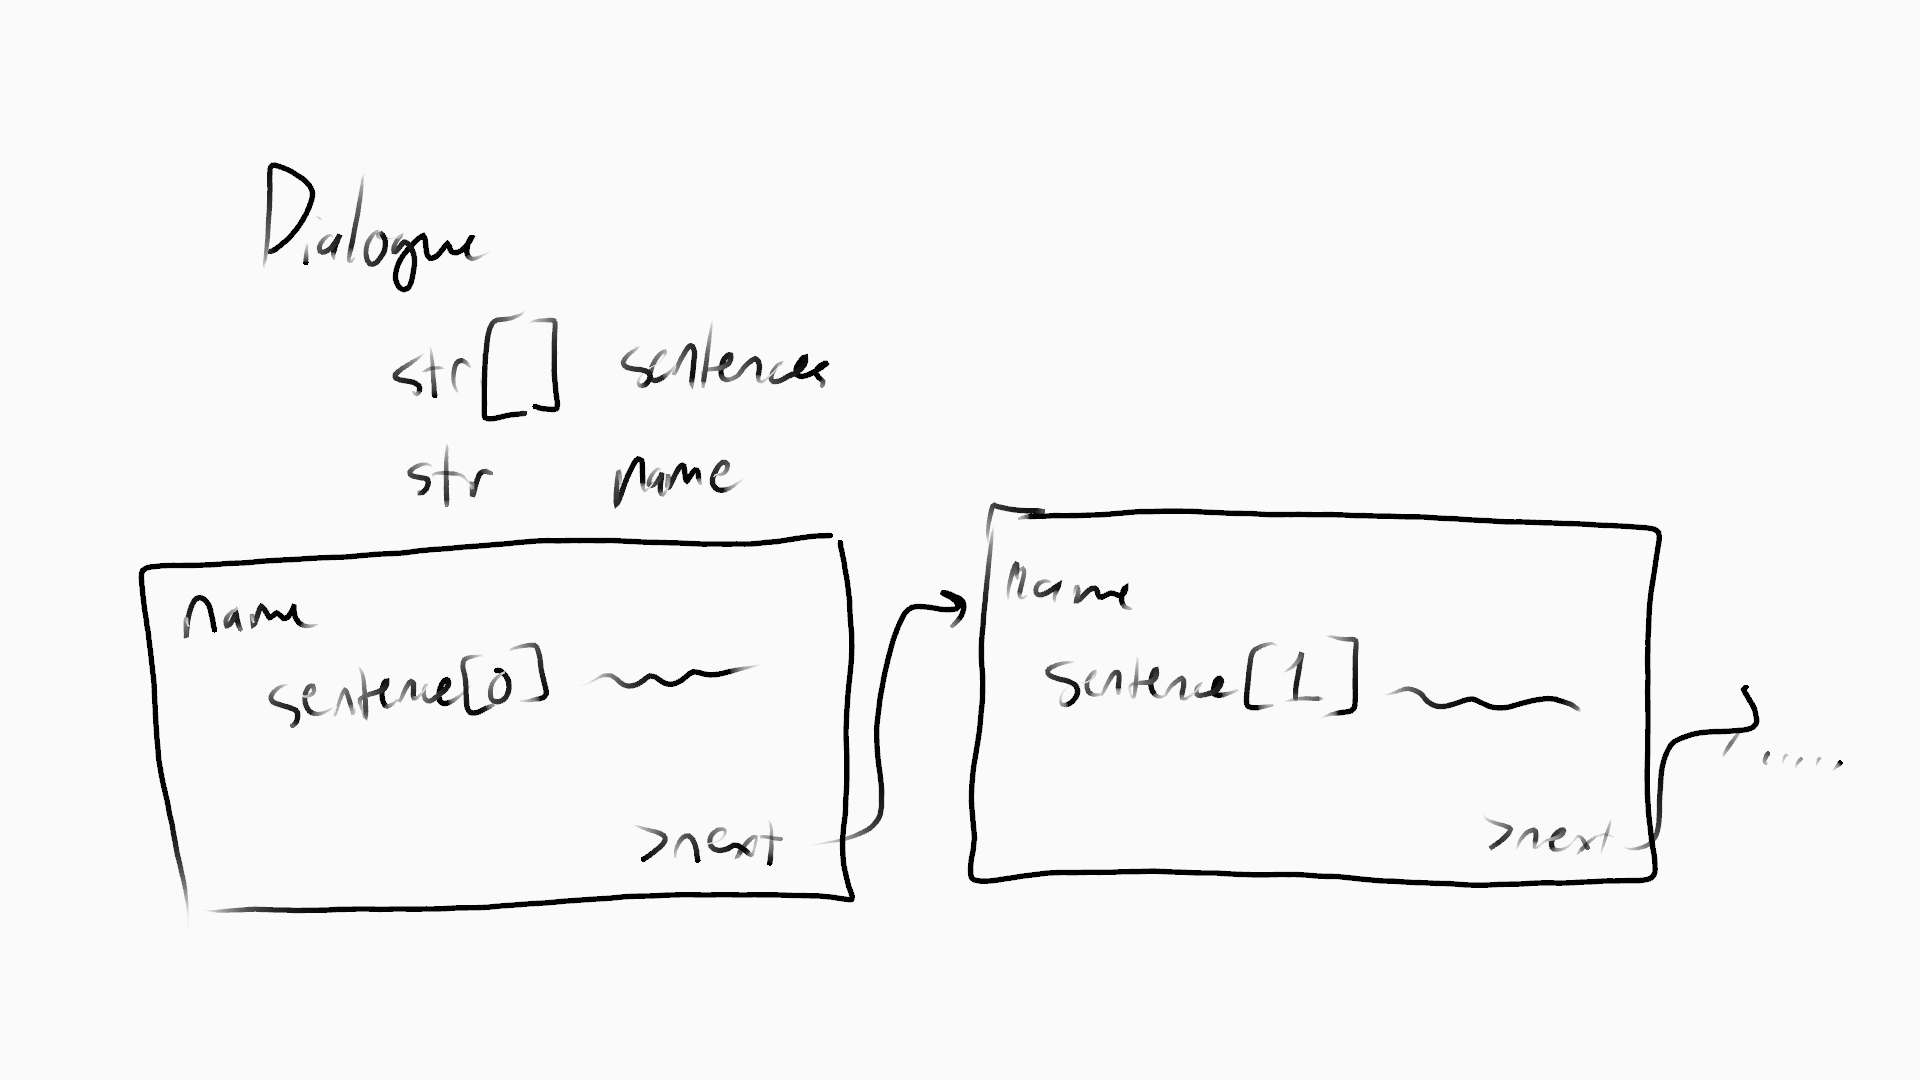 Dialogue
str[] sentences
str name
name
sentence[0]
>next
name
sentence[1]
>next
.....